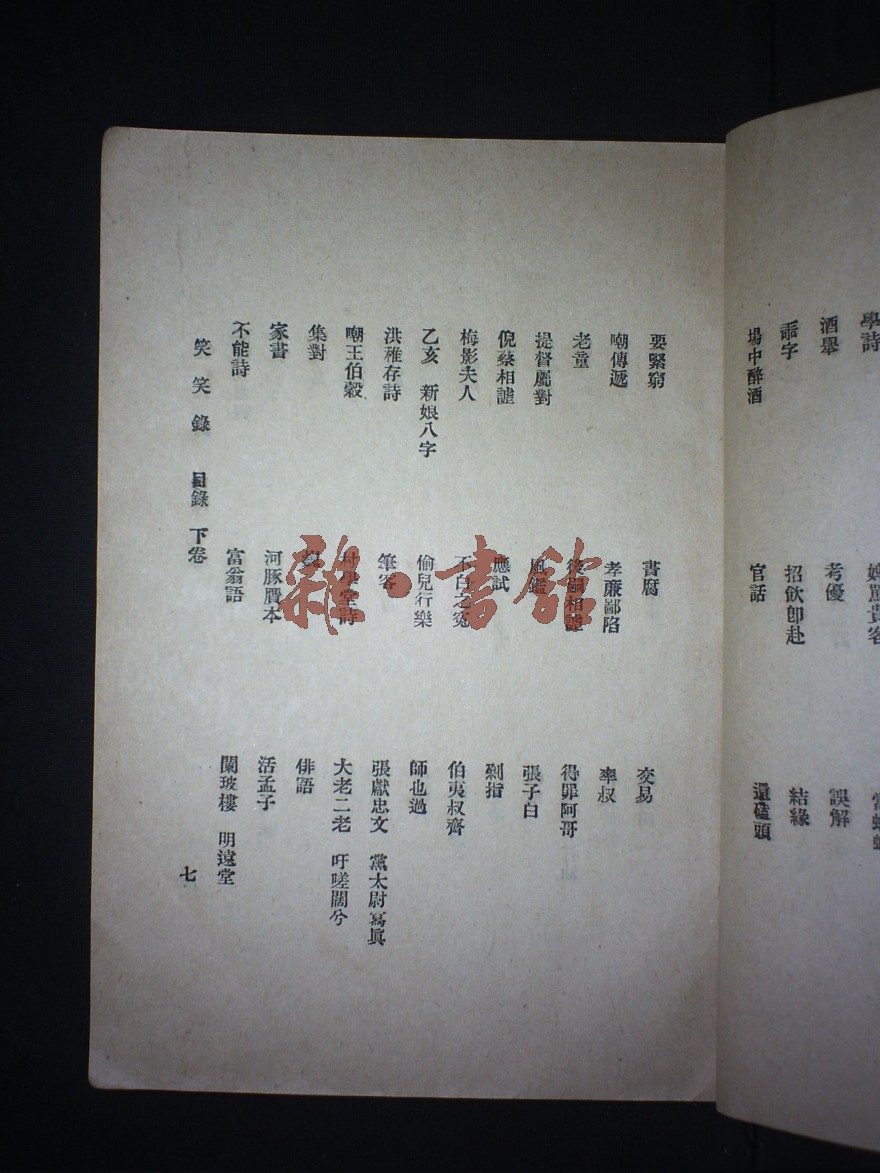 學詩 婢罵貴客
酒舉 考優 誤解
字 招飮卽赴 結緣
場中醉酒 官話 還磕頭
要緊窮 書腐 交易
嘲傳遞 孝廉鄙陷 率叔
老童 相謔 得罪阿哥
提督屬對 風鑑 張子白
倪蔡相謔 應試 剁指
梅影夫人 不白之冤 伯夷叔齊
乙亥 新娘八字 偷兒行樂 師也過
洪稚存詩 筆客 張獻忠文 黨太尉寫眞
嘲王伯穀 村學堂詩 大老二老 吁嗟闊兮
集對 俳語
家書 河豚贋本 活孟子
不能詩 富翁語 闌玻樓 明遠堂
笑笑錄 目錄 下卷 七
雜·書館